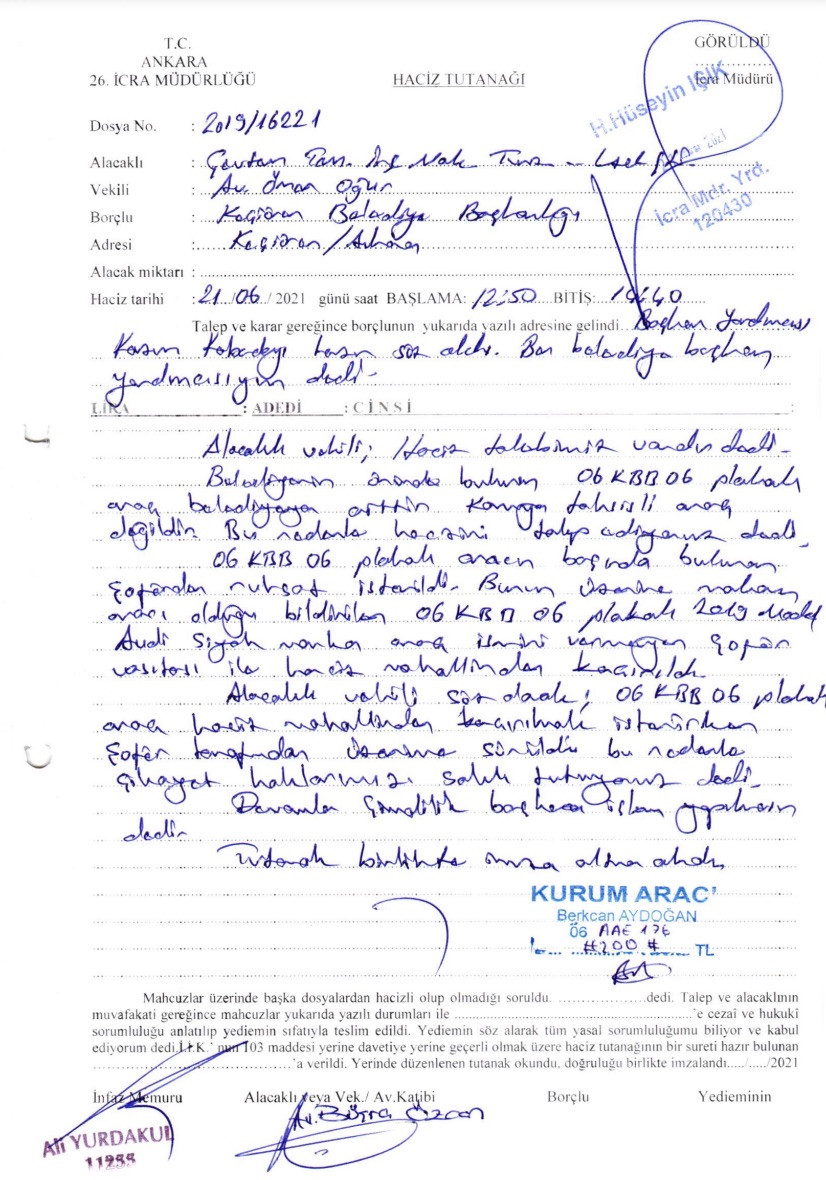 T.C.
ANKARA
26. İCRA MÜDÜRLÜĞÜ
HACİZ TUTANAĞI
GÖRÜLDÜ
İcra Müdürü
H.Hüseyin IŞIK
İcra Mdr. Yrd.
120430
Dosya No. : 2019/16221
Alacaklı :
Vekili : Av.
Borçlu : Keçiören Belediye Başkanlığı
Adresi : Keçiören/Ankara
Alacak miktarı :
Haciz tarihi : 21/06/2021 günü saat BAŞLAMA: 12:50 BİTİŞ:
Talep ve karar gereğince borçlunun yukarıda yazılı adresine gelindi. Başkan Yardımcısı
söz aldı. Ben belediye başkan
yardımcısıyım dedi.
LİRA : ADEDİ : CİNSİ :
Alacaklı vekili; Haciz talebimiz vardır dedi.
Belediyenin önünde bulunan 06 KBB 06 plakalı
araç belediyeye aittir. Kamuya tahsisli araç
değildir. Bu nedenle haczini talep ediyoruz dedi.
06 KBB 06 plakalı aracın başında bulunan
şoförden ruhsat istenildi. Bunun üzerine makam
aracı olduğu bildirilen 06 KBB 06 plakalı 2019 Model
Audi Siyah marka araç ismini vermeyen şoför
vasıtası ile haciz mahallinden kaçırıldı.
Alacaklı vekili söz aldı; 06 KBB 06 plakalı
araç haciz mahallinden kaçırılmak istenirken
şoför tarafından üzerime sürüldü bu nedenle
şikayet haklarımızı saklı tutuyoruz dedi.
Devamla şimdilik başkaca işlem yapılmasın
dedi.
Tutanak birlikte imza altına alındı.
KURUM ARACI
Berkcan AYDOĞAN
06 AAE 176
#200# TL
Mahcuzlar üzerinde başka dosyalardan hacizli olup olmadığı soruldu. dedi. Talep ve alacaklının
muvafakati gereğince mahcuzlar yukarıda yazılı durumları ile 'e cezaî ve hukukî
sorumluluğu anlatılıp yediemin sıfatıyla teslim edildi. Yediemin söz alarak tüm yasal sorumluluğumu biliyor ve kabul
ediyorum dedi.İ.İ.K.' nun 103 maddesi yerine davetiye yerine geçerli olmak üzere haciz tutanağının bir sureti hazır bulunan
'a verildi. Yerinde düzenlenen tutanak okundu, doğruluğu birlikte imzalandı...../...../2021
İnfaz Memuru Alacaklı veya Vek./ Av.Katibi Borçlu Yedieminin
Av. Büşra Özcan
Ali YURDAKUL